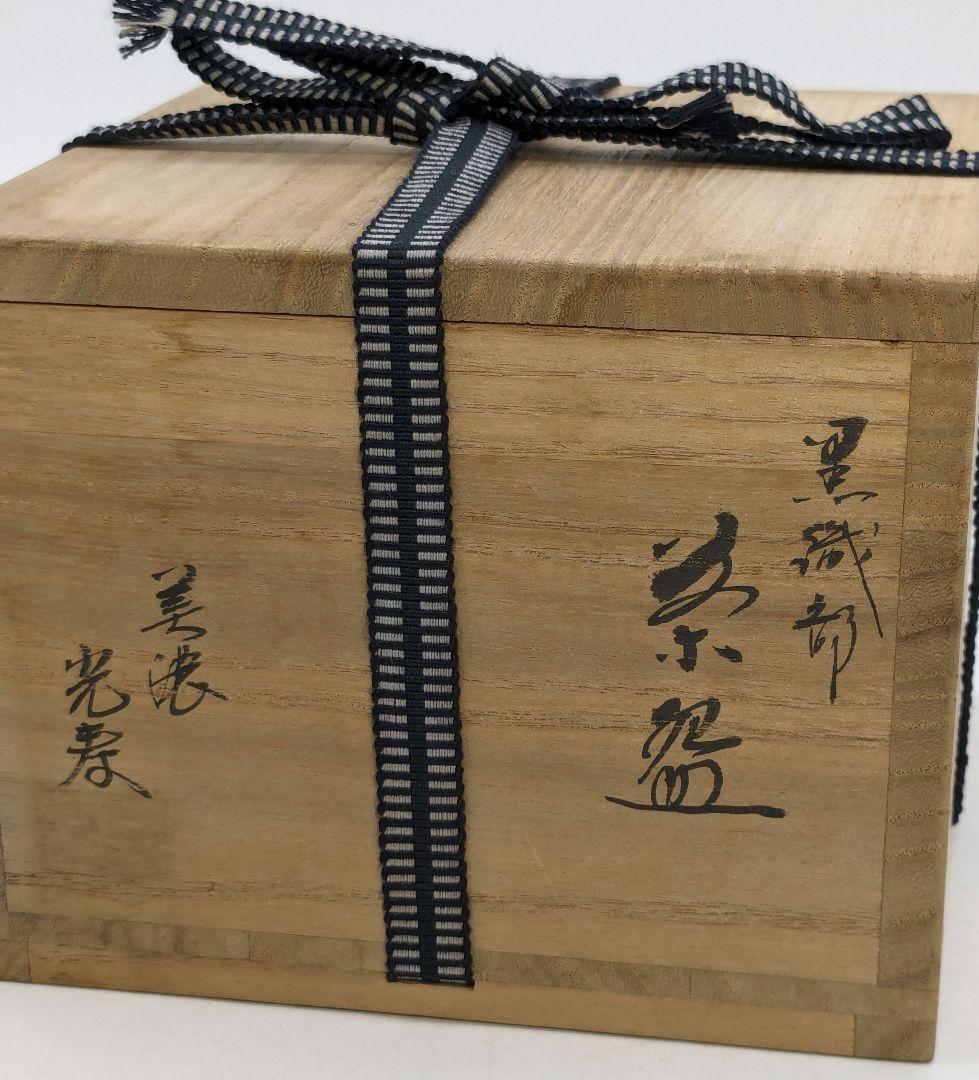 黒織部
茶盌
美濃
光寿